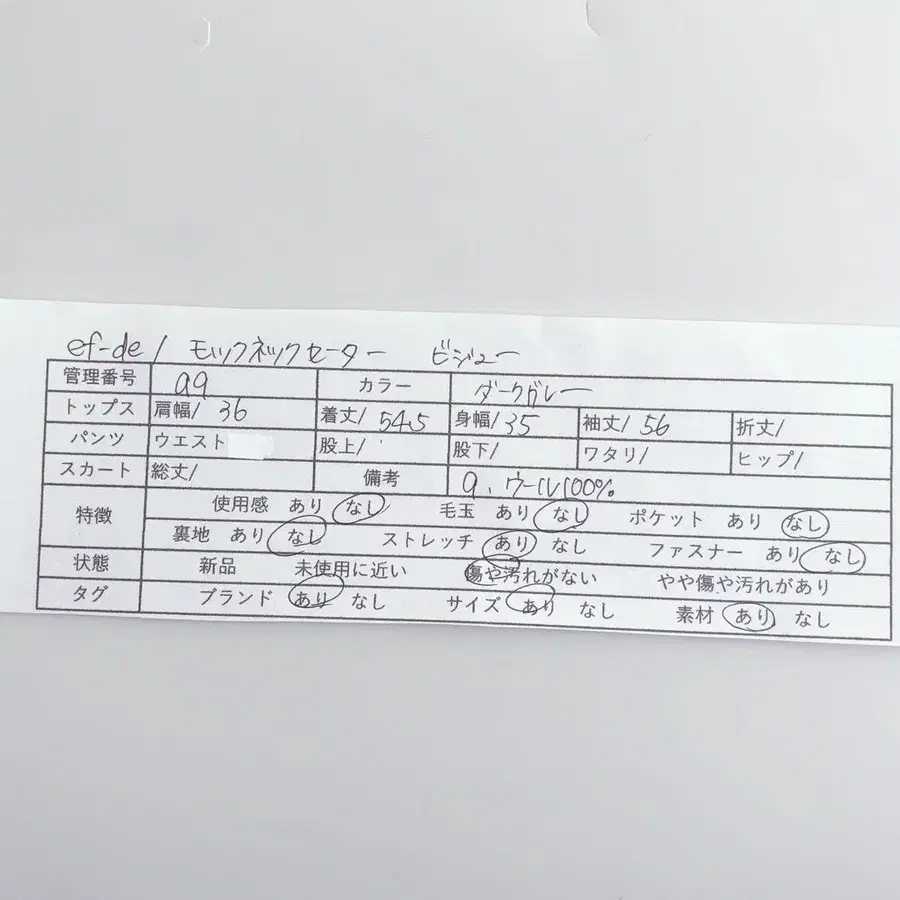 ef-de / モックネックセーター ビジュー
管理番号 a9 カラー ダークグレー
トップス 肩幅/ 36 着丈/ 54.5 身幅/ 35 袖丈/ 56 折丈/
パンツ ウエスト 股上/ 股下/ ワタリ/ ヒップ/
スカート 総丈/ 備考 9、ウール100%
特徴 使用感 あり なし 毛玉 あり なし ポケット あり なし
裏地 あり なし ストレッチ あり なし ファスナー あり なし
状態 新品 未使用に近い 傷や汚れがない やや傷や汚れがあり
タグ ブランド あり なし サイズ あり なし 素材 あり なし